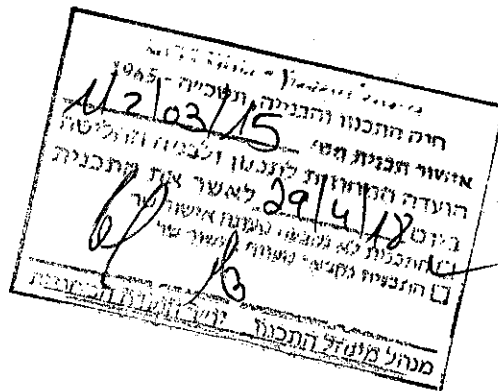 חוק התכנון והבנייה, תשכ"ה - 1965
אישור תכנית מס' 112/03/15
הועדה המחוזית לתכנון ולבניה החליטה
ביום 29/4/18 לאשר את התכנית
התכנית לא נקבעה טעונה אישור שר
☐ התכנית נקבעה טעונה אישור שר
מנהל מינהל התכנון יו"ר הועדה המחוזית